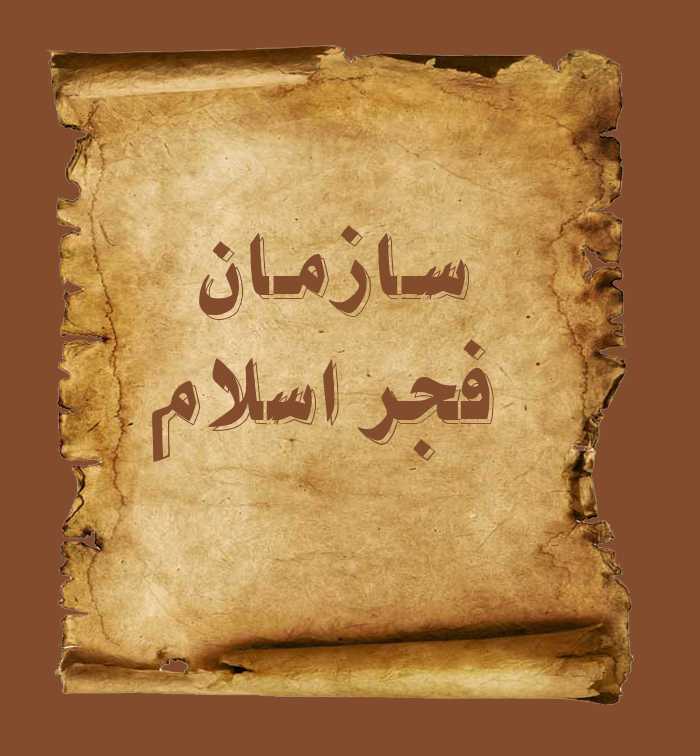 سازمان
فجر اسلام